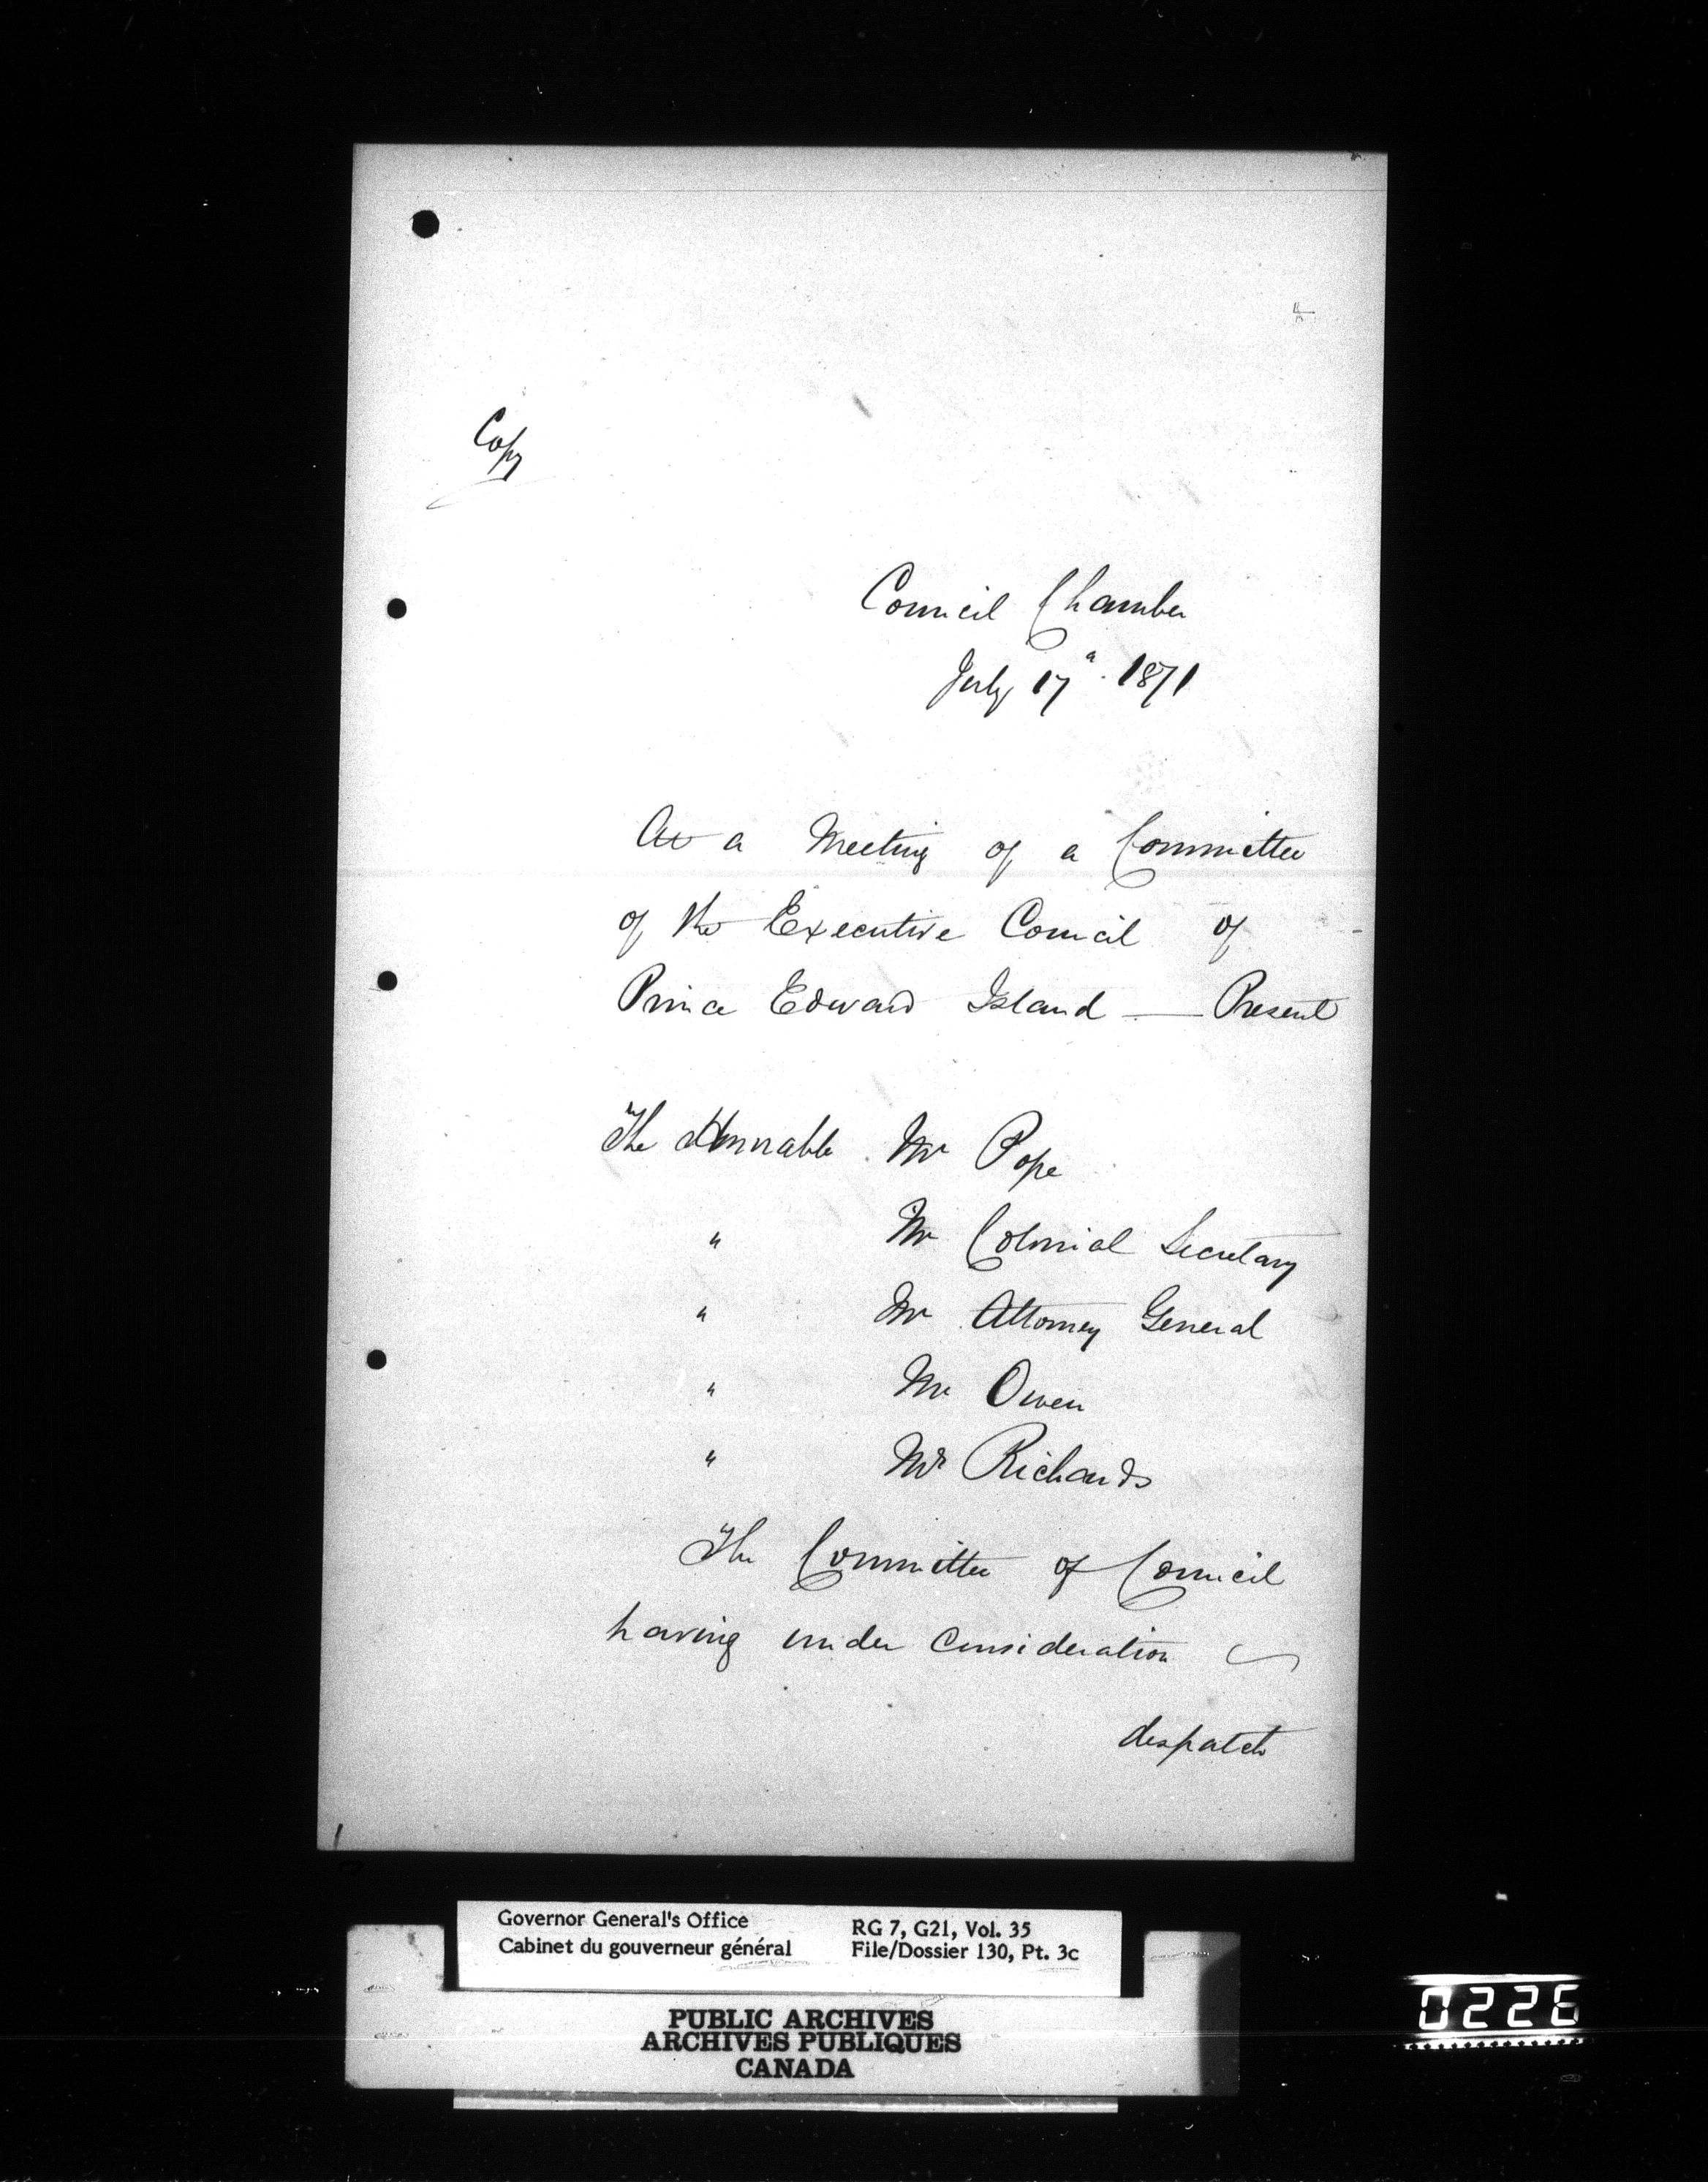 Copy
Council Chamber
July 17th 1871
At a Meeting of a Committee
of the Executive Council of
Prince Edward Island — Present
The Honorable Mr Pope
" Mr Colonial Secretary
" Mr Attorney General
" Mr Owen
" Mr Richards
The Committee of Council
having under consideration
despatch
Governor General's Office
Cabinet du gouverneur général
RG 7, G21, Vol. 35
File/Dossier 130, Pt. 3c
PUBLIC ARCHIVES
ARCHIVES PUBLIQUES
CANADA
0226